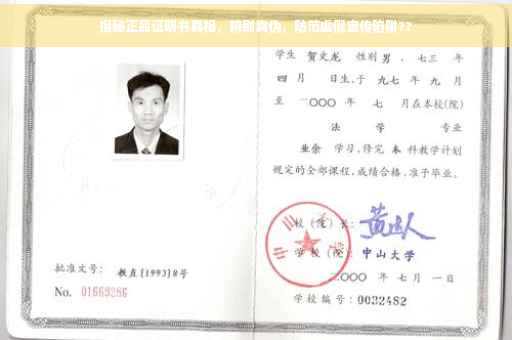 揭秘正品证明书真相，辨别真伪，防范虚假宣传陷阱??
学生 贺文龙 性别 男，七三 年
四 月 日生，于 九七 年 九 月
至 二〇〇〇 年 七 月在本校(院)
法 学 专业
业余 学习，修完 本 科教学计划
规定的全部课程，成绩合格，准予毕业。
校(院)长：
学校(院)：中山大学
二〇〇〇 年 七 月 一 日
学校编号：0032482
批准文号：教直[1993]8号
No. 01669286